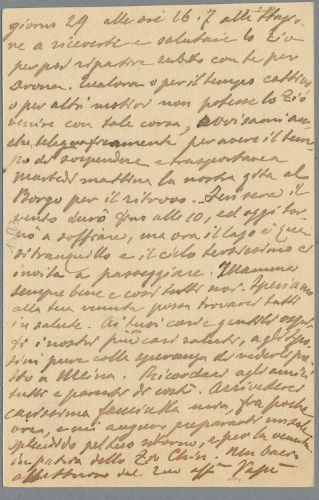 giorno 29 alle ore 16.7 alla Stazio
ne a riceverti e salutare lo zio
per poi ripartire subito con te per
Arona. Qualora o per il tempo cattivo
o per altri motivi non potesse lo Zio
venire con tale corsa, avvisami an
che telegraficamente per avere il tem
po di sospendere e trasportare a
martedì mattina la nostra gita al
Borgo per il ritrovo. Ieri sera il
vento durò fino alle 10, ed oggi tor
nò a soffiare, ma ora il lago è qua
si tranquillo e il cielo tersissimo ci
invita a passeggiare. Mamma
sempre bene e così tutti noi. Speriamo
alla tua venuta possa trovarci tutti
in salute. Ai tuoi cari e gentili ospi
ti i nostri più cari saluti, agli
pure colla speranza di vederli pre
sto a Meina. Ricordaci agli amici
tutti e parenti di costì. Arrivederci
carissima fanciulla mia, fra poche
ore, e mi auguro prepararti una
splendido pel tuo ritorno, e per la venuta
in patria dello Zio Chin. Un bacio
affettuoso dal tuo aff.